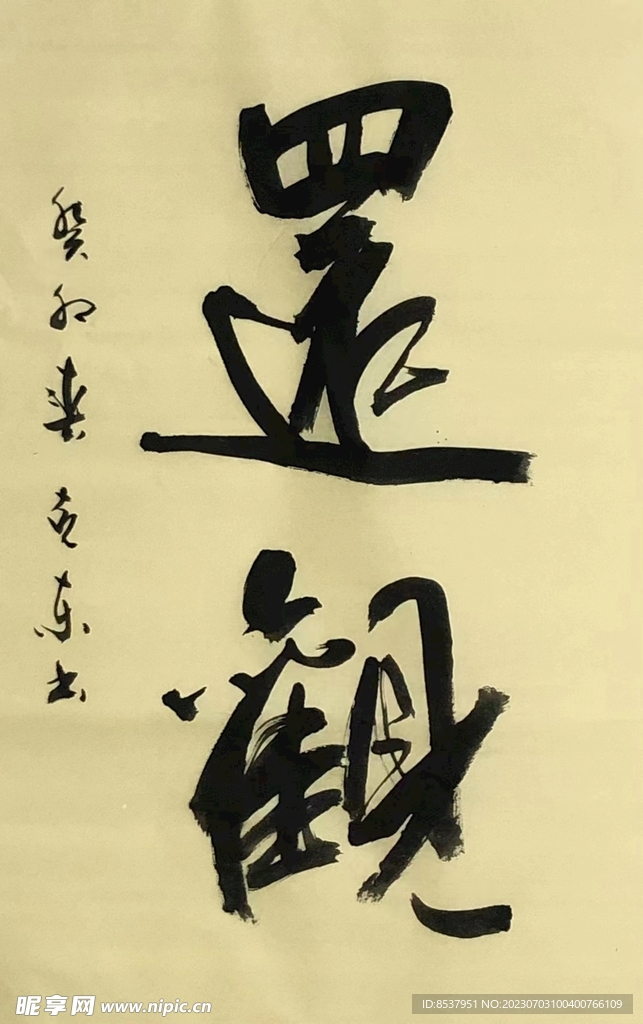 還觀
癸卯春克东书
昵享网 www.nipic.cn
ID:8537951 NO:20230703100400766109